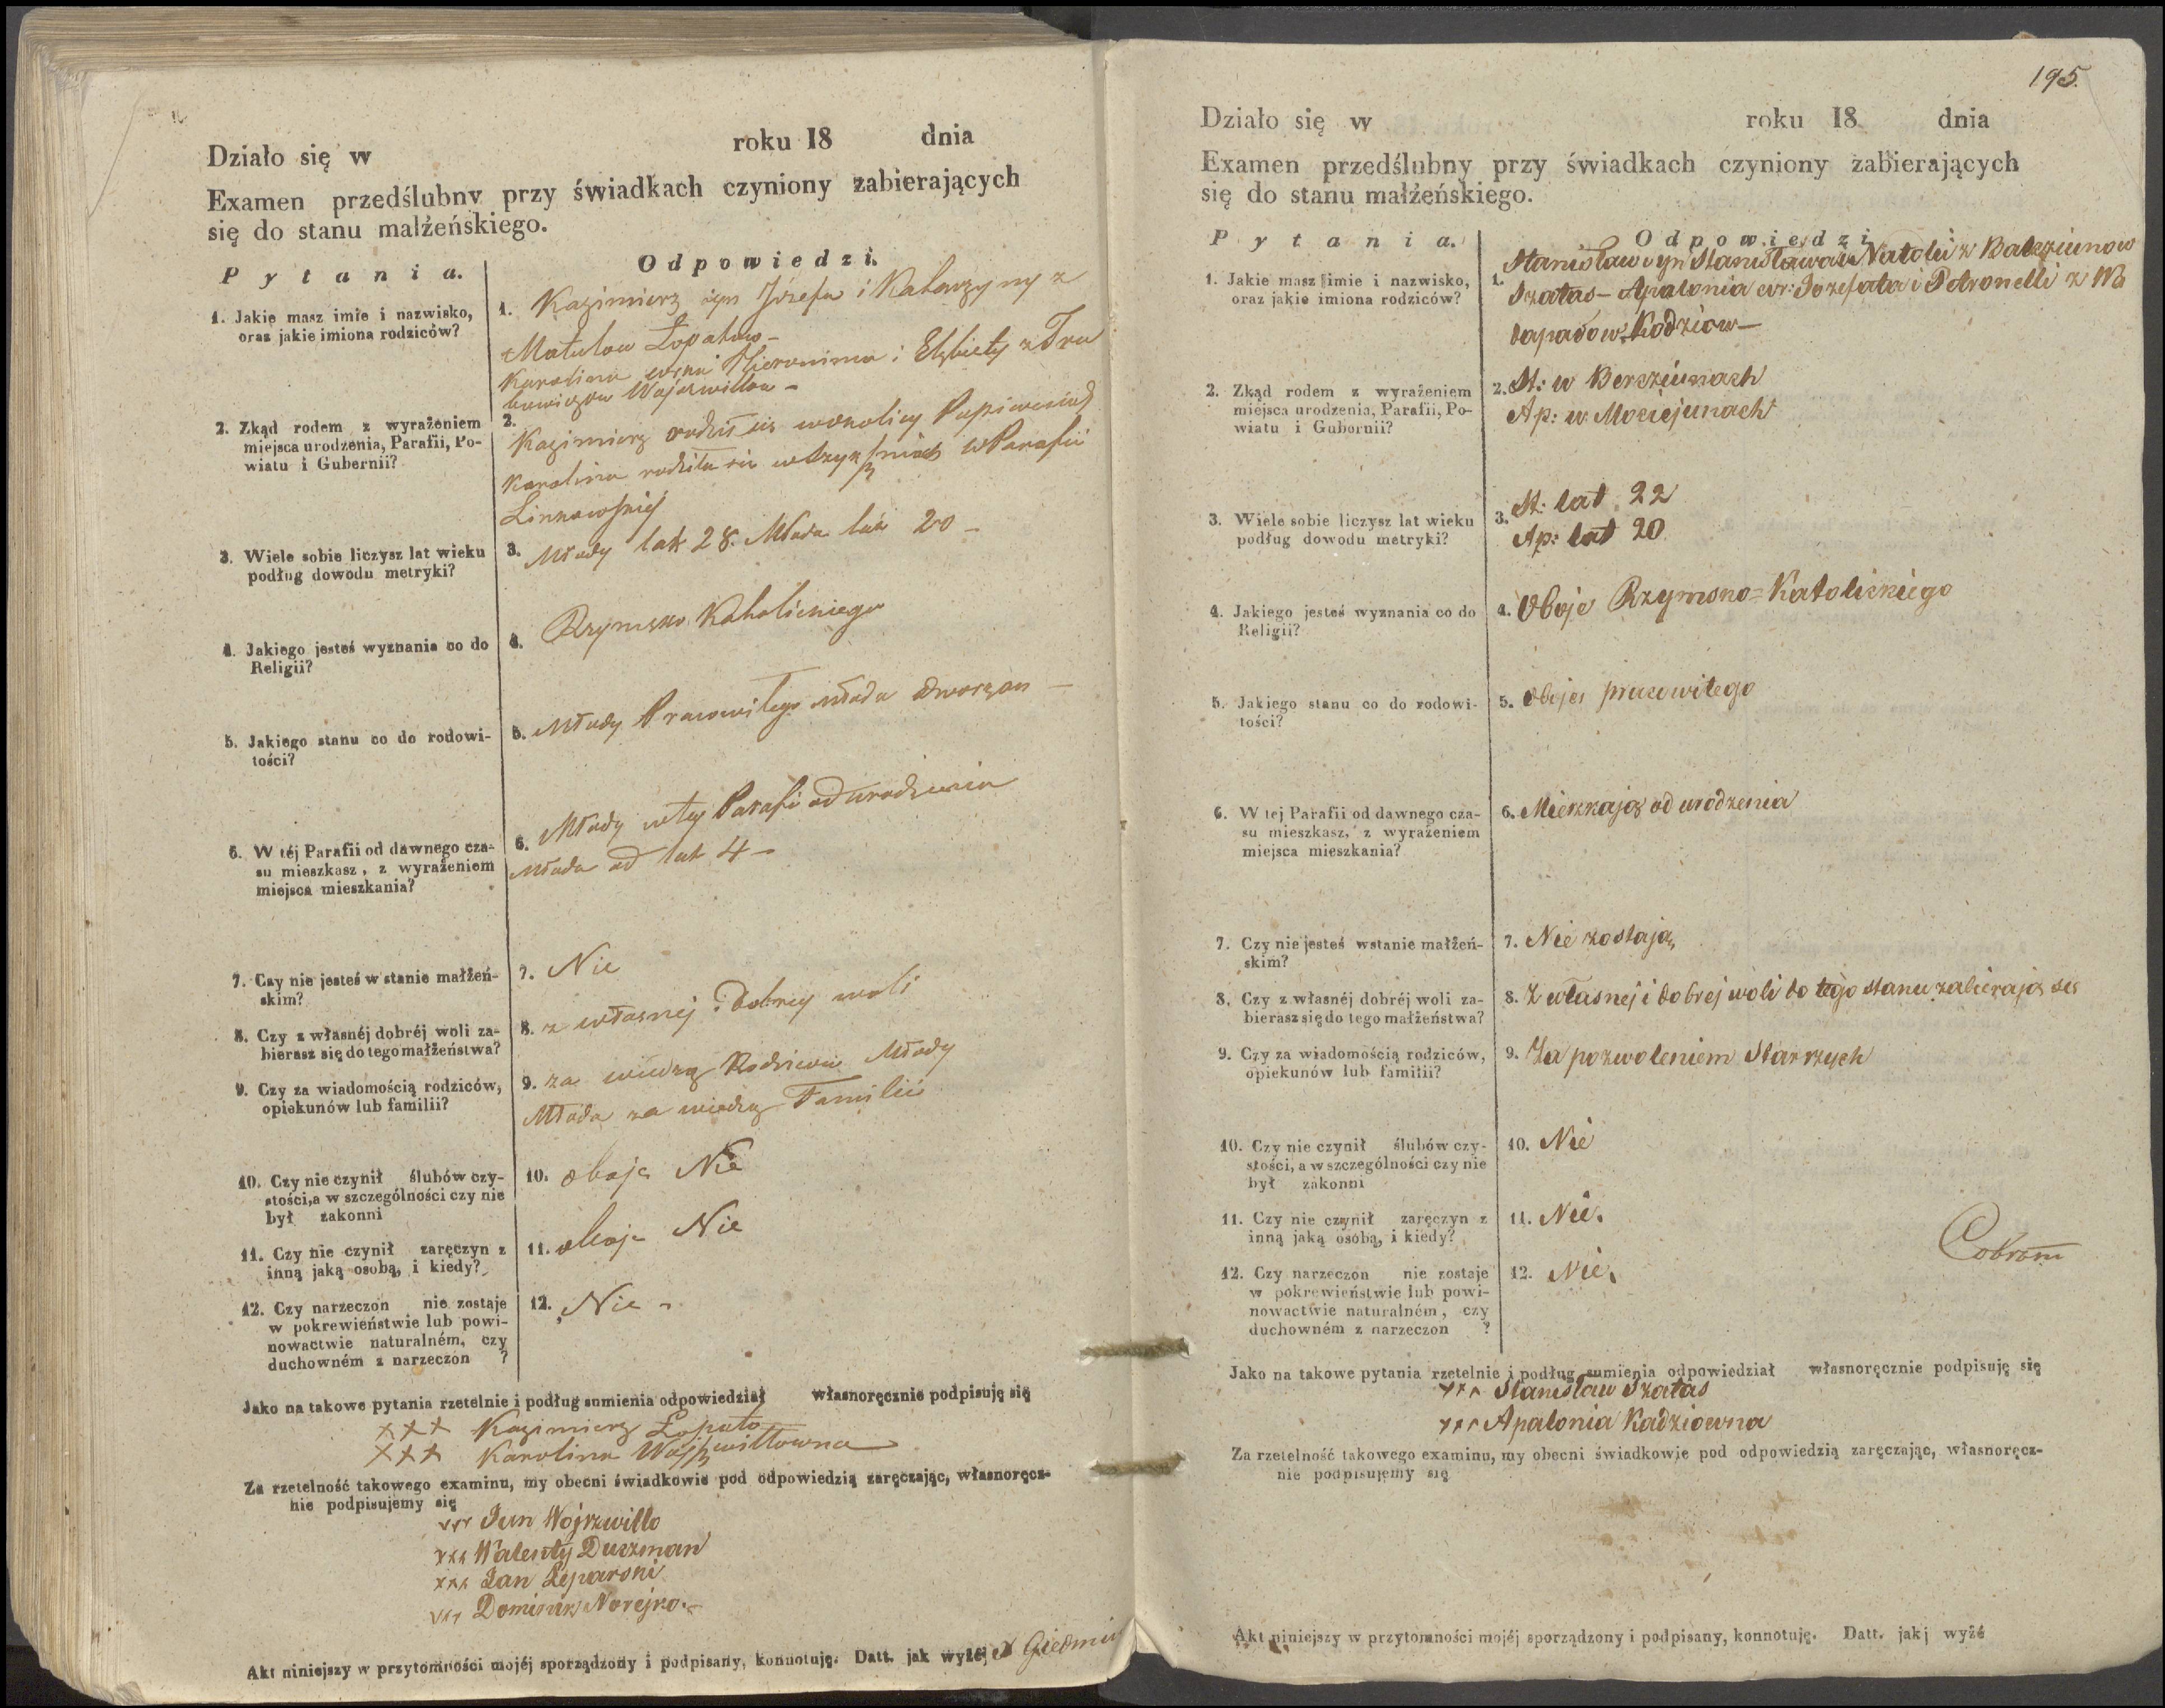 Działo się w roku 18 dnia
Examen przedślubny przy świadkach czyniony zabierających
się do stanu małżeńskiego.
Pytania. Odpowiedzi.
1. Jakie masz imie i nazwisko,
oraz jakie imiona rodziców?
1. Kazimierz syn Józefa i Katarzyny z
Matulow Łopatow –
Karolina córka Hieronima i Elżbiety z
2. Zkąd rodem z wyrażeniem
miejsca urodzenia, Parafii, Po-
wiatu i Gubernii?
2.
Kazimierz rodził się w okolicy
Karolina rodziła się w w Parafii
Linkowskiej
3. Wiele sobie liczysz lat wieku
podług dowodu metryki?
3. Młody lat 28. Młoda lat 20 –
4. Jakiego jesteś wyznania co do
Religii?
4. Rzymsko Katholickiego
5. Jakiego stanu co do rodowi-
tości?
5. Młody Pracowitego młoda dworzan –
6. W téj Parafii od dawnego cza-
su mieszkasz, z wyrażeniem
miejsca mieszkania?
6. Młody w tej Parafii od urodzenia
młoda od lat 4 –
7. Czy nie jesteś w stanie małżeń-
skim?
7. Nie
8. Czy z własnéj dobréj woli za-
bierasz się do tego małżeństwa?
8. z własnej i dobrey woli
9. Czy za wiadomością rodziców,
opiekunów lub familii?
9. za wiedzą Rodziców Młody
Młoda za wiedzą Familii
10. Czy nie czynił ślubów czy-
stości, a w szczególności czy nie
był zakonni
10. oboje Nie
11. Czy nie czynił zaręczyn z
inną jaką osobą, i kiedy?
11. oboje Nie
12. Czy narzeczon nie zostaje
w pokrewieństwie lub powi-
nowactwie naturalném, czy
duchowném z narzeczon ?
12. Nie –
Jako na takowe pytania rzetelnie i podług sumienia odpowiedział własnoręcznie podpisuję się
××× Kazimierz Łopato
××× Karolina
Za rzetelność takowego examinu, my obecni świadkowie pod odpowiedzią zaręczając, własnoręcz-
nie podpisujemy się
××× Jan Wojzwillo
××× Walenty Duszman
××× Jan Leparski
××× Dominik Norejko. –
Akt niniejszy w przytomności mojéj sporządzony i podpisany, konnotuję. Datt. jak wyżéj
195.
Działo się w roku 18 dnia
Examen przedślubny przy świadkach czyniony zabierających
się do stanu małżeńskiego.
Pytania. Odpowiedzi
1. Jakie masz imie i nazwisko,
oraz jakie imiona rodziców?
1. Stanisław syn Stanisława i Natolii z
Szałas – Apalonia cór: Jozefata i Petronelli z
Kodziow –
2. Zkąd rodem z wyrażeniem
miejsca urodzenia, Parafii, Po-
wiatu i Gubernii?
2. St: w Berżiunach
Ap: w Mociejunach
3. Wiele sobie liczysz lat wieku
podług dowodu metryki?
3. St: lat 22
Ap: lat 20
4. Jakiego jesteś wyznania co do
Religii?
4. Oboje Rzymsko=Katolickiego
5. Jakiego stanu co do rodowi-
tości?
5. Oboje pracowitego
6. W tej Parafii od dawnego cza-
su mieszkasz, z wyrażeniem
miejsca mieszkania?
6. Mieszkają od urodzenia
7. Czy nie jesteś wstanie małżeń-
skim?
7. Nie zostają
8. Czy z własnéj dobréj woli za-
bierasz się do tego małżeństwa?
8. Z własnej i dobrej woli do tego stanu zabierają się
9. Czy za wiadomością rodziców,
opiekunów lub familii?
9. Za pozwoleniem Starszych
10. Czy nie czynił ślubów czy-
stości, a w szczególności czy nie
był zakonni
10. Nie
11. Czy nie czynił zaręczyn z
inną jaką osobą, i kiedy?
11. Nie.
12. Czy narzeczon nie zostaje
w pokrewieństwie lub powi-
nowactwie naturalném, czy
duchowném z narzeczon ?
12. Nie.
Jako na takowe pytania rzetelnie i podług sumienia odpowiedział własnoręcznie podpisuję się
××× Stanisław Szałas
××× Apalonia Kadziowna
Za rzetelność takowego examinu, my obecni świadkowie pod odpowiedzią zaręczając, własnoręcz-
nie podpisujemy się
Akt niniejszy w przytomności mojéj sporządzony i podpisany, konnotuję. Datt. jakj wyżé